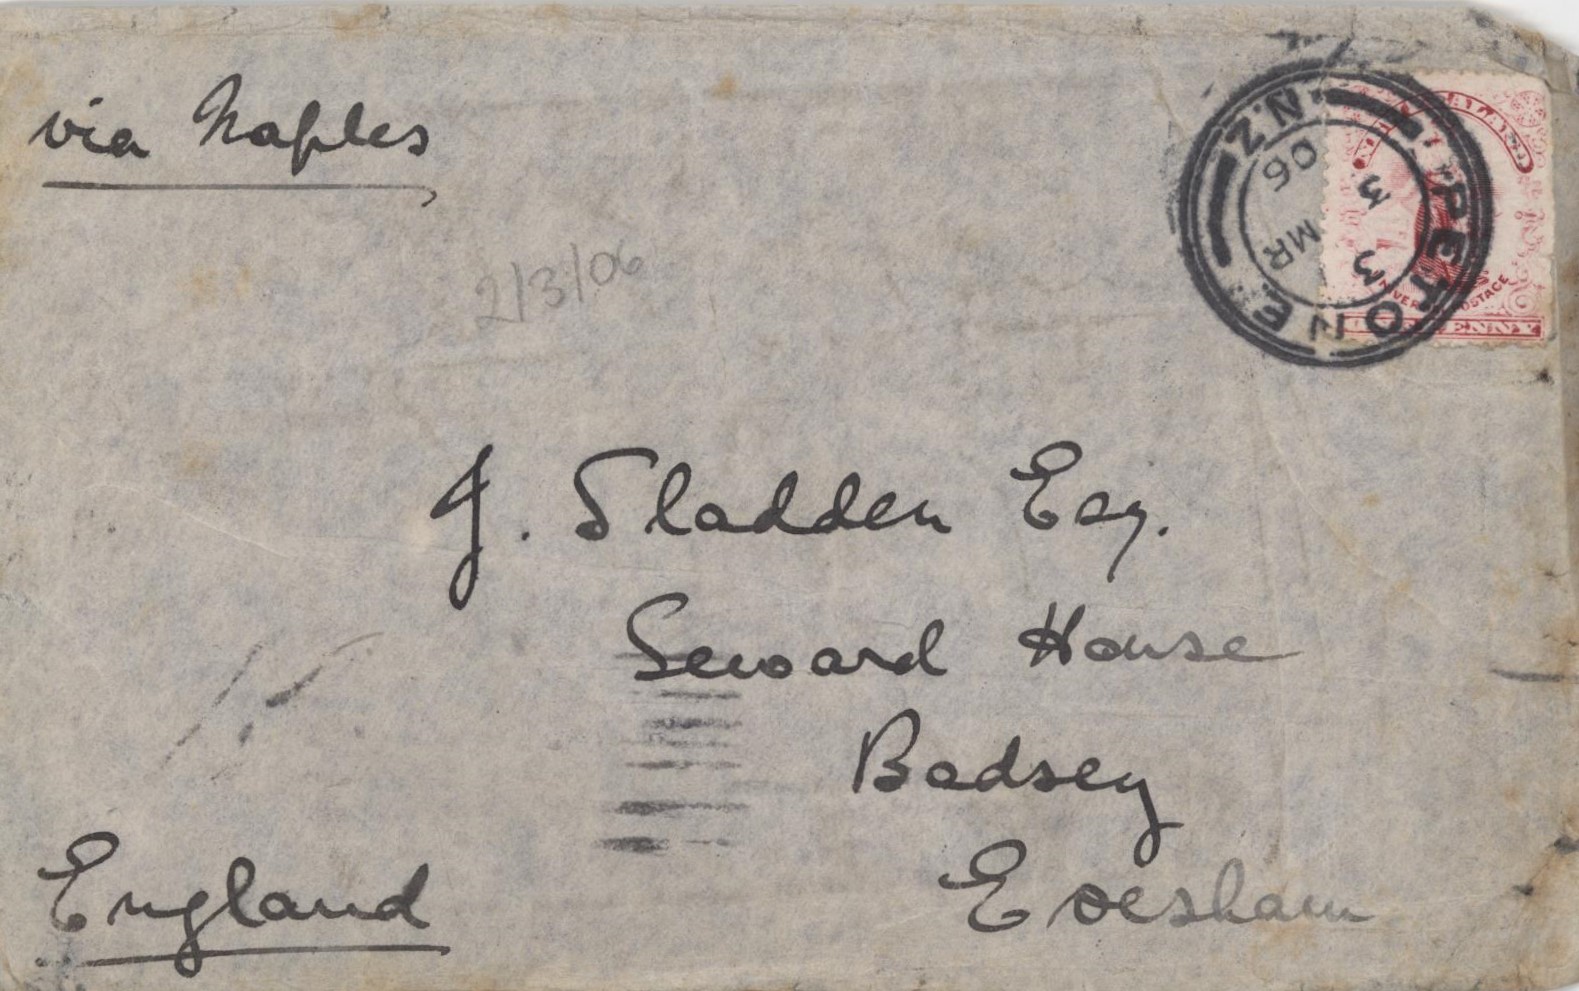 via Naples
2/3/06
PETONE N.Z.
3
3 MR
06
POSTAGE
PENNY
J. Sladden Esq.
Seward House
Badsey
Evesham
England